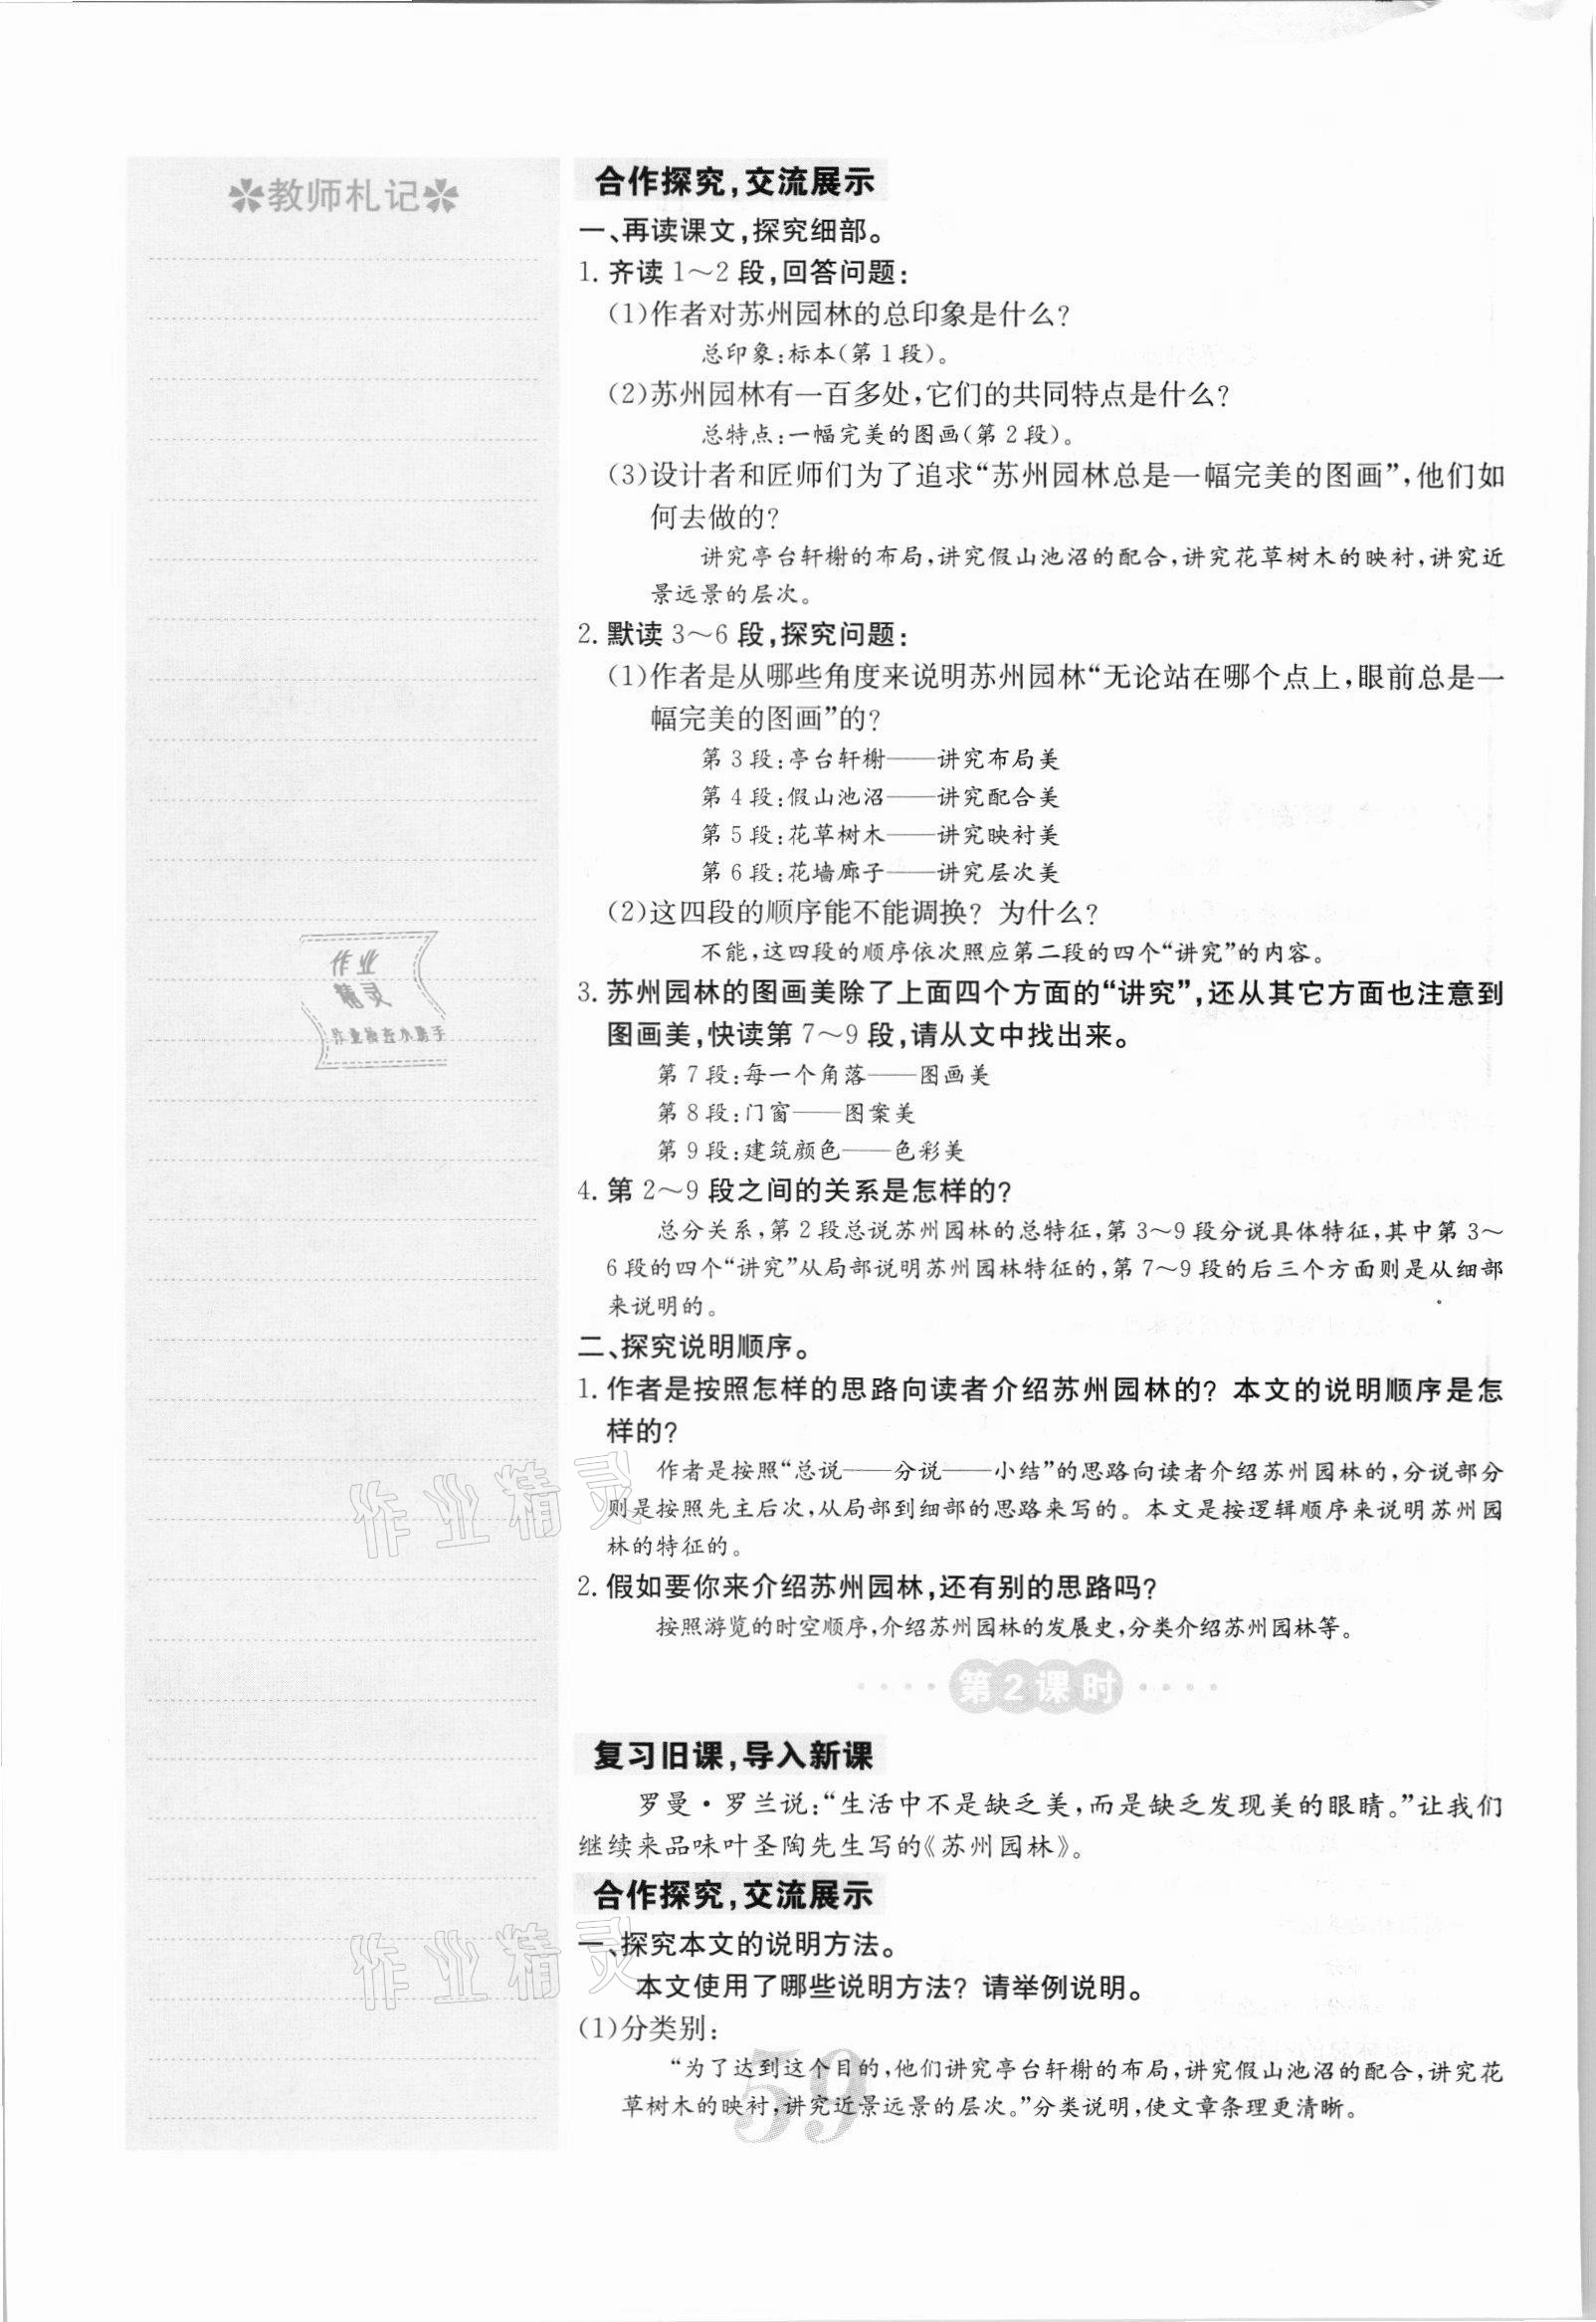 ✽教师札记✽
作业
精灵
作业检查小助手
合作探究,交流展示
一、再读课文,探究细部。
1. 齐读 1～2 段,回答问题:
(1)作者对苏州园林的总印象是什么?
总印象:标本(第 1 段)。
(2)苏州园林有一百多处,它们的共同特点是什么?
总特点:一幅完美的图画(第 2 段)。
(3)设计者和匠师们为了追求“苏州园林总是一幅完美的图画”,他们如
何去做的?
讲究亭台轩榭的布局,讲究假山池沼的配合,讲究花草树木的映衬,讲究近
景远景的层次。
2. 默读 3～6 段,探究问题:
(1)作者是从哪些角度来说明苏州园林“无论站在哪个点上,眼前总是一
幅完美的图画”的?
第 3 段:亭台轩榭——讲究布局美
第 4 段:假山池沼——讲究配合美
第 5 段:花草树木——讲究映衬美
第 6 段:花墙廊子——讲究层次美
(2)这四段的顺序能不能调换? 为什么?
不能,这四段的顺序依次照应第二段的四个“讲究”的内容。
3. 苏州园林的图画美除了上面四个方面的“讲究”,还从其它方面也注意到
图画美,快读第 7～9 段,请从文中找出来。
第 7 段:每一个角落——图画美
第 8 段:门窗——图案美
第 9 段:建筑颜色——色彩美
4. 第 2～9 段之间的关系是怎样的?
总分关系,第 2 段总说苏州园林的总特征,第 3～9 段分说具体特征,其中第 3～
6 段的四个“讲究”从局部说明苏州园林特征的,第 7～9 段的后三个方面则是从细部
来说明的。
二、探究说明顺序。
1. 作者是按照怎样的思路向读者介绍苏州园林的? 本文的说明顺序是怎
样的?
作者是按照“总说——分说——小结”的思路向读者介绍苏州园林的,分说部分
则是按照先主后次,从局部到细部的思路来写的。本文是按逻辑顺序来说明苏州园
林的特征的。
2. 假如要你来介绍苏州园林,还有别的思路吗?
按照游览的时空顺序,介绍苏州园林的发展史,分类介绍苏州园林等。
第2课时
复习旧课,导入新课
罗曼·罗兰说:“生活中不是缺乏美,而是缺乏发现美的眼睛。”让我们
继续来品味叶圣陶先生写的《苏州园林》。
合作探究,交流展示
一、探究本文的说明方法。
本文使用了哪些说明方法? 请举例说明。
(1)分类别:
“为了达到这个目的,他们讲究亭台轩榭的布局,讲究假山池沼的配合,讲究花
草树木的映衬,讲究近景远景的层次。”分类说明,使文章条理更清晰。
59
作业精灵
作业精灵